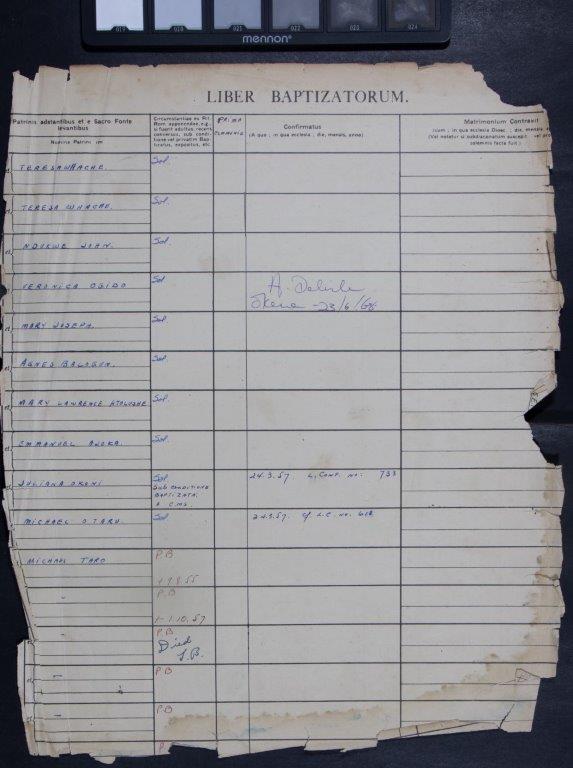 019 020 021 022 023 024
mennon
LIBER BAPTIZATORUM.
Patrinis adstantibus et e Sacro Fonte
levantibus
Nomina Patrini
Circumstantiae ex Rit.
Rom. apponendae, e.g.,
si fuerit adultus, recens
conversus, sub. condi-
tione vel privatim Bap-
tizatus, expositus, etc.
PRIMA
COMMUNIO
Confirmatus
(A quo ; in qua ecclesia ; die, mensis, anno)
Matrimonium Contraxit
(cum ; in qua ecclesia Dioec. ; die, mensis
(Vel notetur si subdiaconatum suscepit
solemnis facta fuit.)
TERESA WHACHE. Sol.
et,
TERESA WHACHE. Sol.
et,
NDUKWE JOHN. Sol.
et,
VERONICA OGIDO Sol
A. Delisle
Okene - 23/6/68
et,
MARY JOSEPH. Sol
et,
AGNES BALOGUN. Sol.
et,
MARY LAWRENCE Sol.
et,
EMMANUEL AJOKA. Sol.
et,
JULIANA OKONI Sol 24.3.57. L. CONF. NO: 733
SUB CONDITIONE
BAPTIZATA.
A C.M.S.
et,
MICHAEL OTARU. Sol 24.3.57. L.C. NO.
et,
MICHAEL TARO P.B
+ 9.8.55
P.B
+ 1.10.57
P.B
Died
P.B
P.B
P.